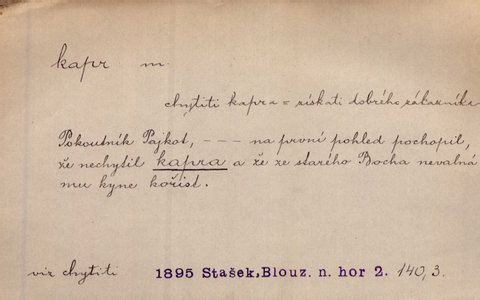 kapr m.
chytiti kapra = získati dobrého zákazníka
Pokoutník Pajkot, --- na první pohled pochopil,
že nechytil kapra a že ze starého Bocha nevalná
mu kyne kořist.
viz chytiti 1895 Stašek, Blouz. n. hor 2. 140, 3.